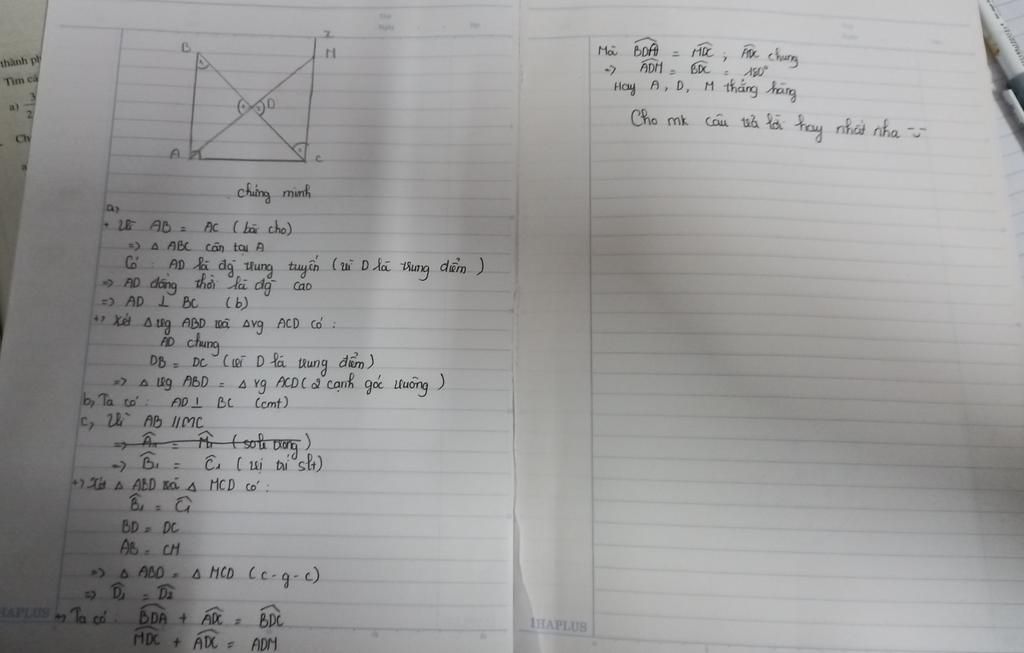 thành ph
Tìm cá
a) 3
2
Ch
B
M
D
A
C
chứng minh
a,
+ Vì AB = AC (bài cho)
=> △ ABC cân tại A
Có : AD là đg trung tuyến (vì D là trung điểm)
=> AD đồng thời là đg cao
=> AD ⊥ BC (b)
+) Xét △ vg ABD và △ vg ACD có :
AD chung
DB = DC (vì D là trung điểm)
=> △ vg ABD = △ vg ACD (2 cạnh góc vuông)
b, Ta có : AD ⊥ BC (cmt)
c, Vì AB // MC
=> B̂₁ = Ĉ₁ (vị trí slt)
+) Xét △ ABD và △ MCD có :
B̂₁ = Ĉ₁
BD = DC
AB = CM
=> △ ABD = △ MCD (c-g-c)
=> D̂₁ = D̂₂
=> Ta có : BDA + ADC = BDC
MDC + ADC = ADM
1HAPLUS
Mà BDA = MDC ; ADC chung
=> ADM = BDC = 180°
Hay A, D, M thẳng hàng
Cho mk câu trả lời hay nhất nha
1HAPLUS